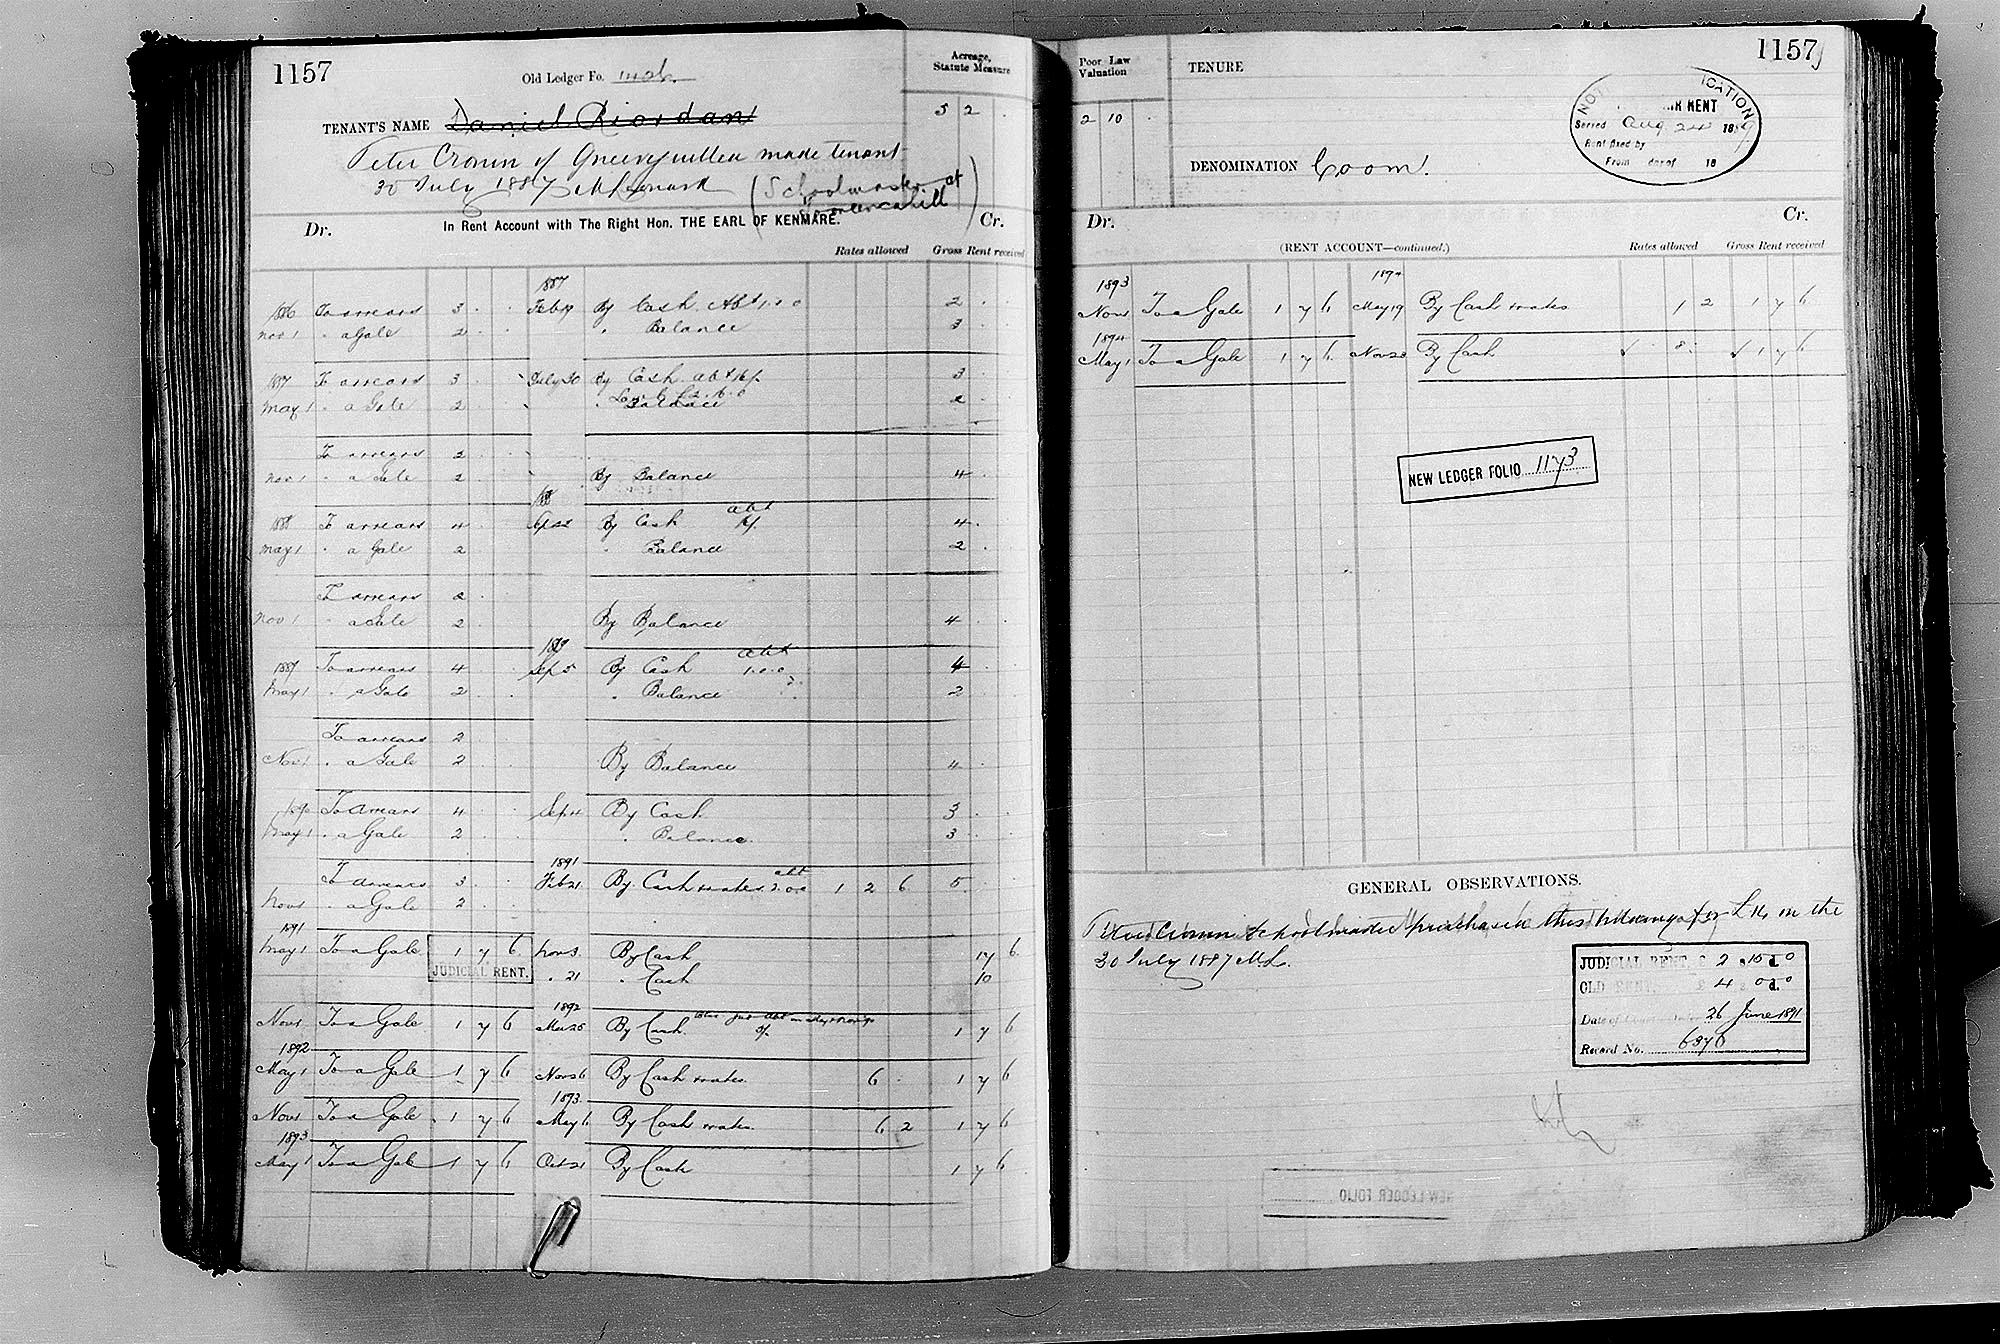 1157
Old Ledger Fo.
Acreage, Statute Measure
TENANT'S NAME Daniel Riordan
5 2
Peter Cronin of Gneeveguillea made tenant
30 July 1887 (Schoolmaster at
In Rent Account with The Right Hon. THE EARL OF KENMARE.
Dr. Cr.
Rates allowed Gross Rent received
1887
1886 To arrears 3 Feb 19 By Cash Abt 1.0.0 2
Nov 1 " a Gale 2 " Balance 3
1887 To arrears 3 July 30 By Cash abt 3
May 1 " a Gale 2 " Balance 2
To arrears 2
Nov 1 " a Gale 2 By Balance 4
188
1888 To arrears 4 Sep 22 By Cash abt 4
May 1 " a Gale 2 " Balance 2
To arrears 2
Nov 1 " a Gale 2 By Balance 4
1889
1889 To arrears 4 Sep 5 By Cash abt 1.0.0 4
May 1 " a Gale 2 " Balance 2
To arrears 2
Nov 1 " a Gale 2 By Balance 4
1890 To arrears 4 Sep 4 By Cash 3
May 1 " a Gale 2 " Balance 3
1891
To arrears 3 Feb 21 By Cash & rates abt 2.0.0 1 2 6 5
Nov 1 " a Gale 2
1891
May 1 To a Gale 1 7 6 Nov 3 By Cash 17 6
JUDICIAL RENT. " 21 " Cash 10
1892
Nov 1 To a Gale 1 7 6 Mar 25 By Cash 1 7 6
1892
May 1 To a Gale 1 7 6 Nov 26 By Cash & rates 6 1 7 6
1893
Nov 1 To a Gale 1 7 6 May 6 By Cash & rates 6 2 1 7 6
1893
May 1 To a Gale 1 7 6 Oct 21 By Cash 1 7 6
1157
Poor Law Valuation
TENURE
2 10
DENOMINATION Coom
NOT ICATION
IR RENT
Served Aug 24 1889
Rent fixed by
From day of 18
Dr. Cr.
(RENT ACCOUNT—continued.)
Rates allowed Gross Rent received
1893 1894
Nov 1 To a Gale 1 7 6 May 19 By Cash & rates 1 2 1 7 6
1894
May 1 To a Gale 1 7 6 Nov 23 By Cash 8 1 7 6
NEW LEDGER FOLIO 1173
GENERAL OBSERVATIONS.
Peter Cronin Schoolmaster purchased this holding for £16 on the
30 July 1887 M.L.
JUDICIAL RENT £ 2 s 15 d 0
OLD RENT, £ 4 s 0 d. 0
Date of 26 June 1891
Record No. 6376
NEW LEDGER FOLIO